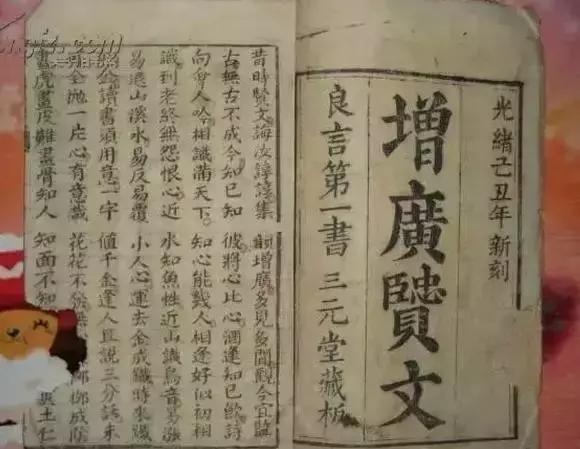 光緒己丑年新刻
增廣賢文
良言第一書 三元堂藏板
昔時賢文誨汝諄諄集韻增廣多見多聞觀今宜鑒
古無古不成今知己知彼將心比心酒逢知己飲詩
向會人吟相識滿天下知心能幾人相逢好似初相
識到老終無怨恨心近水知魚性近山識鳥音易漲
易退山溪水易反易覆小人心運去金成鐵時來鐵
似金讀書須用意一字值千金逢人且說三分話未
可全拋一片心有意栽花花不發無柳成蔭
畫虎畫皮難畫骨知人知面不知土仁